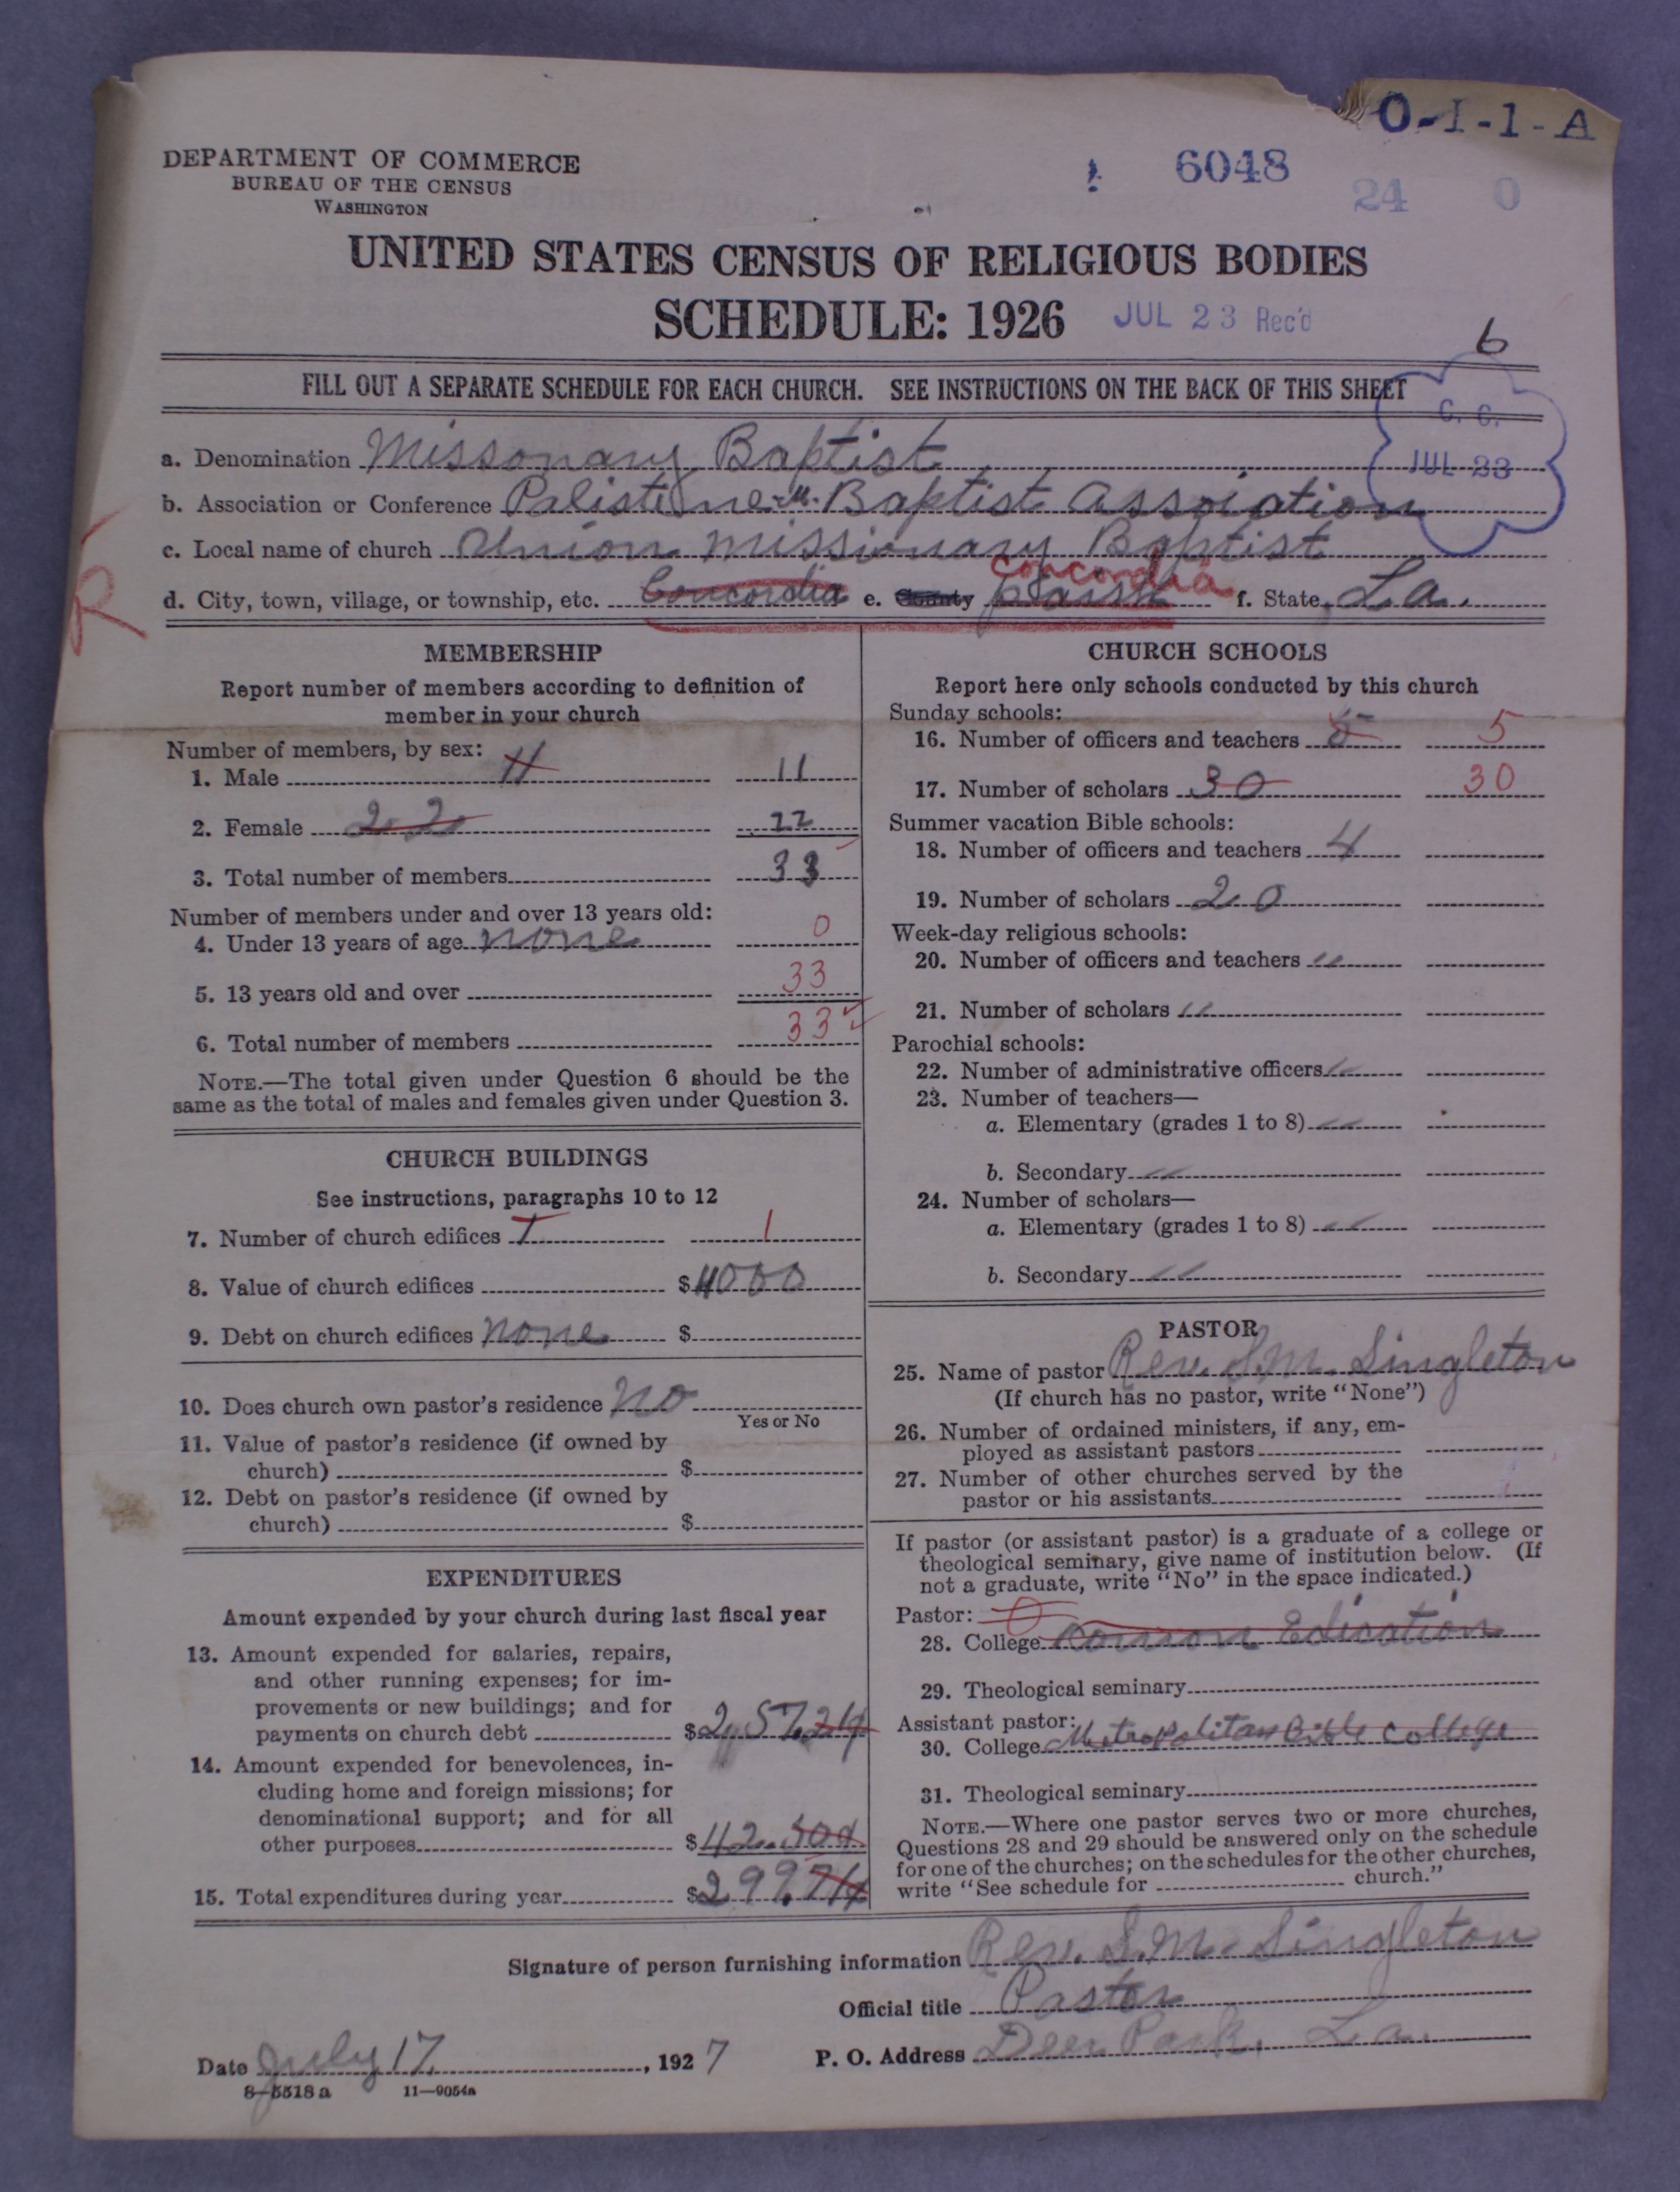 O-1-1-A
DEPARTMENT OF COMMERCE
BUREAU OF THE CENSUS
WASHINGTON
6048
24 0
UNITED STATES CENSUS OF RELIGIOUS BODIES
SCHEDULE: 1926 JUL 23 Rec'd
6
FILL OUT A SEPARATE SCHEDULE FOR EACH CHURCH. SEE INSTRUCTIONS ON THE BACK OF THIS SHEET
C. C.
JUL 23
a. Denomination Missonary Baptist
b. Association or Conference Palistine Baptist Assoiation
c. Local name of church Union Missionary Baptist
d. City, town, village, or township, etc. Concordia e. County Parish Concordia f. State La.
R
MEMBERSHIP
Report number of members according to definition of
member in your church
Number of members, by sex:
1. Male 11 11
2. Female 22 22
3. Total number of members 33
Number of members under and over 13 years old:
4. Under 13 years of age none 0
5. 13 years old and over 33
6. Total number of members 33
NOTE.—The total given under Question 6 should be the
same as the total of males and females given under Question 3.
CHURCH BUILDINGS
See instructions, paragraphs 10 to 12
7. Number of church edifices 1 1
8. Value of church edifices $4000
9. Debt on church edifices none $
10. Does church own pastor's residence no
Yes or No
11. Value of pastor's residence (if owned by
church) $
12. Debt on pastor's residence (if owned by
church) $
EXPENDITURES
Amount expended by your church during last fiscal year
13. Amount expended for salaries, repairs,
and other running expenses; for im-
provements or new buildings; and for
payments on church debt $257.24
14. Amount expended for benevolences, in-
cluding home and foreign missions; for
denominational support; and for all
other purposes $42.50
15. Total expenditures during year $299.74
CHURCH SCHOOLS
Report here only schools conducted by this church
Sunday schools:
16. Number of officers and teachers 5 5
17. Number of scholars 30 30
Summer vacation Bible schools:
18. Number of officers and teachers 4
19. Number of scholars 20
Week-day religious schools:
20. Number of officers and teachers "
21. Number of scholars "
Parochial schools:
22. Number of administrative officers "
23. Number of teachers—
a. Elementary (grades 1 to 8) "
b. Secondary "
24. Number of scholars—
a. Elementary (grades 1 to 8) "
b. Secondary "
PASTOR
25. Name of pastor Rev. S.M. Singleton
(If church has no pastor, write "None")
26. Number of ordained ministers, if any, em-
ployed as assistant pastors
27. Number of other churches served by the
pastor or his assistants
If pastor (or assistant pastor) is a graduate of a college or
theological seminary, give name of institution below. (If
not a graduate, write "No" in the space indicated.)
Pastor: 0
28. College Edication
29. Theological seminary
Assistant pastor:
30. College Metropolitan Bible College
31. Theological seminary
NOTE.—Where one pastor serves two or more churches,
Questions 28 and 29 should be answered only on the schedule
for one of the churches; on the schedules for the other churches,
write "See schedule for church."
Signature of person furnishing information Rev. S.M. Singleton
Official title Pastor
Date July 17, 1927 P. O. Address Deer Park, La.
8-5518a 11—9054a